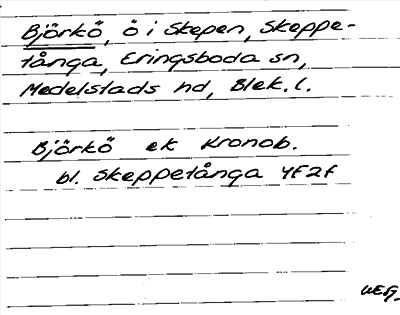 Björkö, ö i Skepen, Skeppe-
tånga, Eringsboda sn,
Medelstads hd, Blek. l.
Björkö ek Kronob.
bl. Skeppetånga 4F2f